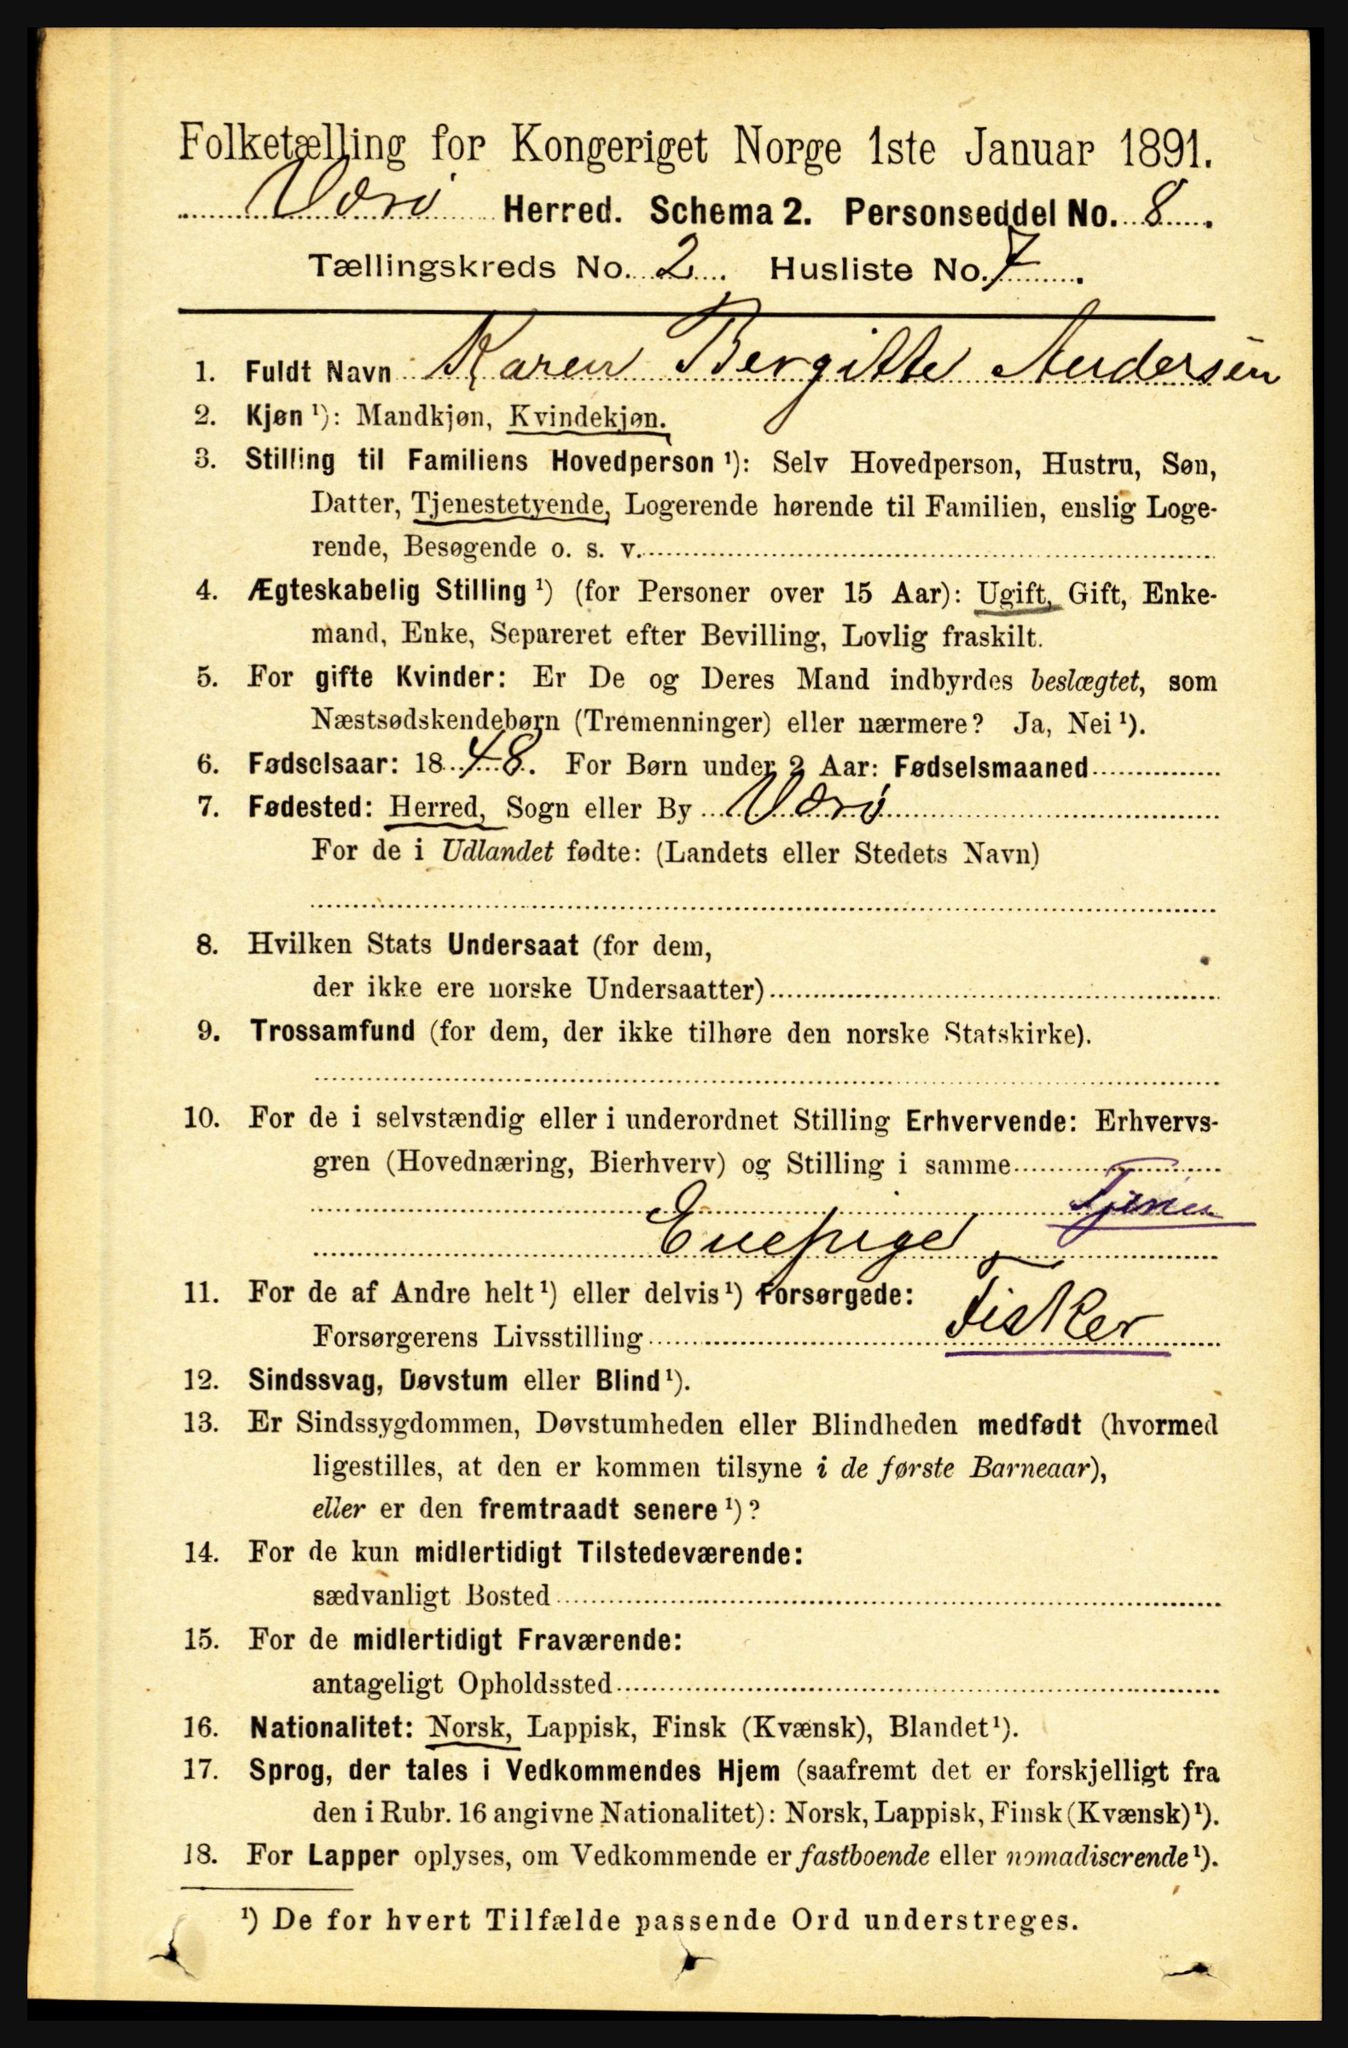 Folketælling for Kongeriget Norge 1ste Januar 1891.
Værø Herred. Schema 2. Personseddel No. 8.
Tællingskreds No. 2. Husliste No. 7.
1. Fuldt Navn Karen Bergitte Andersen
2. Kjøn ¹): Mandkjøn, Kvindekjøn.
3. Stilling til Familiens Hovedperson ¹): Selv Hovedperson, Hustru, Søn,
Datter, Tjenestetyende, Logerende hørende til Familien, enslig Loge-
rende, Besøgende o. s. v.
4. Ægteskabelig Stilling ¹) (for Personer over 15 Aar): Ugift, Gift, Enke-
mand, Enke, Separeret efter Bevilling, Lovlig fraskilt.
5. For gifte Kvinder: Er De og Deres Mand indbyrdes beslægtet, som
Næstsødskendebørn (Tremenninger) eller nærmere? Ja, Nei ¹).
6. Fødselsaar: 1848. For Børn under 2 Aar: Fødselsmaaned
7. Fødested: Herred, Sogn eller By Værø
For de i Udlandet fødte: (Landets eller Stedets Navn)
8. Hvilken Stats Undersaat (for dem,
der ikke ere norske Undersaatter)
9. Trossamfund (for dem, der ikke tilhøre den norske Statskirke).
10. For de i selvstændig eller i underordnet Stilling Erhvervende: Erhvervs-
gren (Hovednæring, Bierhverv) og Stilling i samme
Tjener
11. For de af Andre helt ¹) eller delvis ¹) Forsørgede:
Forsørgerens Livsstilling Fisker
12. Sindssvag, Døvstum eller Blind ¹).
13. Er Sindssygdommen, Døvstumheden eller Blindheden medfødt (hvormed
ligestilles, at den er kommen tilsyne i de første Barneaar),
eller er den fremtraadt senere ¹)?
14. For de kun midlertidigt Tilstedeværende:
sædvanligt Bosted
15. For de midlertidigt Fraværende:
antageligt Opholdssted
16. Nationalitet: Norsk, Lappisk, Finsk (Kvænsk), Blandet ¹).
17. Sprog, der tales i Vedkommendes Hjem (saafremt det er forskjelligt fra
den i Rubr. 16 angivne Nationalitet): Norsk, Lappisk, Finsk (Kvænsk) ¹).
18. For Lapper oplyses, om Vedkommende er fastboende eller nomadiserende ¹).
¹) De for hvert Tilfælde passende Ord understreges.